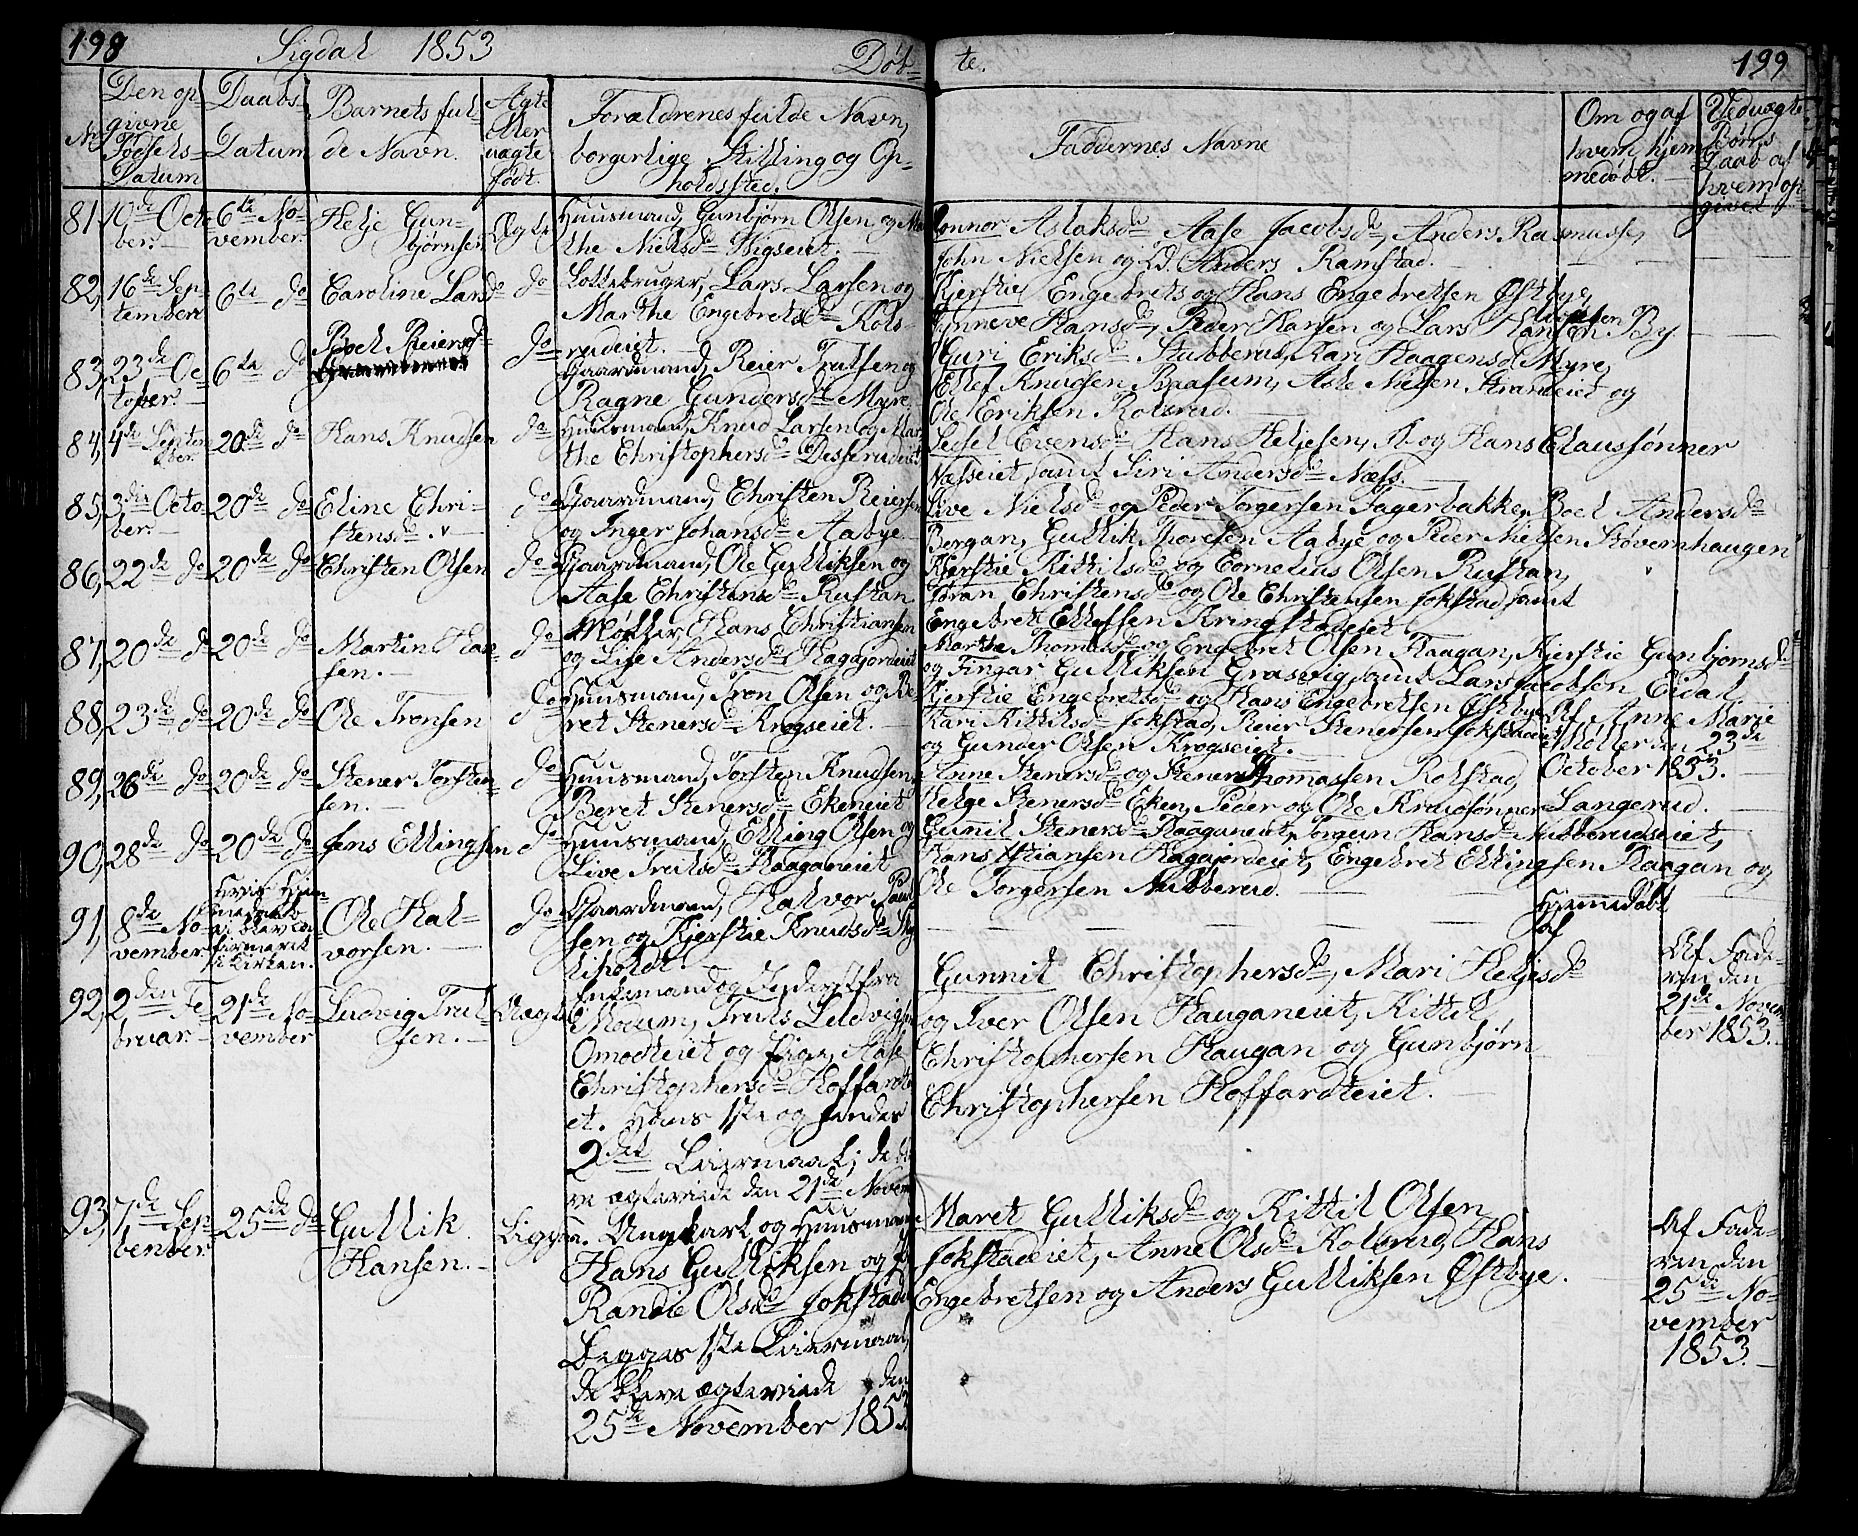 198 Sigdal 1853 Döb= te. 199
No Den op-
givne
Födsels-
Datum
Daabs-
Datum
Barnets ful-
de Navn.
Ægte
eller
uægte
født.
Forældrenes fulde Navn,
borgerlige Stilling og Op-
holdssted.
Faddernes Navne
Om og af
hvem hjem
medøbt.
Ved uægte
Børns
Daab af
hvem op-
givet
81, 10de Octo-
ber.
6te No-
vember.
Helje Gun-
bjørnsen
Ægte
Huusmand, Gunbjørn Olsen og
the Nielsd.
Aslaksd. Aase Jacobsd, Anders Rasmussen,
John Nielsen og Anders Ramstad.
82, 16de Sep-
tember
6te do
Caroline Larsd.
do
Lars Larsen og
Marthe Engebretsd. Kols-
rudeiet.
Kjerstie Engebrets og Hans Engebretsen Østbye,
Hansd, Peder Hansen og Lars Hansen By
83, 23de Oc-
tober.
6te do
Boel Reiersd.
do
Gaardmand, Reier Trulsen og
Ragne Gundersd. Myre
Guri Eriksd. Stubberud, Kari Haagensd. Myre,
Ellef Knudsen Braasum, Asle Nielsen Strandeiet og
Ole Eriksen Kolsrud.
84, 4de Septem-
ber.
20de do
Hans Knudsen
do
Huusmand, Knud Larsen og Mar-
the Christophersd. Desserudeiet
Sedsel Evensd, Hans Heljesen, A. og Hans Claussønner
Næsseiet samt Siri Andersd. Næss.
85, 3die Octo-
ber.
20de do
Eline Chri-
stensd.
do
Gaardmand, Christen Reiersen
og Inger Johansd. Aabye
Live Nielsd. og Peder Torgersen Fagerbakken, Boel Andersd.
Bergan, Gullik Thoresen Aabye og Peder Nielsen Støvernhaugen
86, 22de do
20de do
Christen Olsen
do
Gaardmand, Ole Gulliksen og
Aase Christensd. Rustan
Kjerstie Kittilsd. og Cornelius Olsen Rustan,
Jøran Christensd. og Ole Christensen Jokstad samt
Engebret Ellefsen Kringstadeiet.
87, 20de do
20de do
Martin Han-
sen.
do
Møller, Hans Christiansen
og Lise Andersd. Hagajordeiet
Marthe Thomasd. og Engebret Olsen Haagan, Kjerstie Gunbjørnsd.
og Fingar Gulliksen Grøsvig samt Lars Jacobsen Eidal
88, 23de do
20de do
Ole Tronsen
do
Huusmand, Tron Olsen og Be-
ret Stenersd. Krogseiet.
Kjerstie Engebretsd. og Hans Engebretsen Østbye,
Kari Kittilsd. Jokstad, Reier Stenersen Jokstadeiet
og Gunder Olsen Krogseiet.
Af Anne Marie
Møller den 23de
October 1853.
89, 26de do
20de do
Stener Torsten-
sen.
do
Huusmand, Torsten Knudsen,
Beret Stenersd. Ekeneiet
Anne Stenersd. og Stener Thomassen Rolstad,
Helge Stenersd. Eken, Peder og Ole Knudsønner Langerud.
90, 28de do
20de do
Jens Ellingsen
do
Huusmand, Elling Olsen og
Live Trulsd. Haaganeiet
Gunnil Stenersd. Haaganeiet, Jorgun Hansd. Nubberudseiet,
Hans Christiansen Hagajordeiet, Engebret Ellingsen Haagan og
Ole Torgersen Nubberud.
91, 8de No-
vember
Hvis Hjem-
medaab
ei blev con-
firmeret
i Kirken.
Ole Hal-
vorsen.
do
Gaardmand, Halvor Paul-
sen og Kjerstie Knudsd.
Hjemmedøbt
af
92, 2den Fe-
bruar.
21de No-
vember
Ludvig Trul-
sen.
Uægte
Enkemand og Inderst fra
Modum, Truls Ludvigsen
Omodteiet og Pige, Aase
Christophersd. Hoffardt-
et. Hans 1ste og hendes
2det Leiermaal; de ble-
ve ægteviede den 21de Novem
Gunnil Christophersd, Mari Heljesd.
og Iver Olsen Hauganeiet, Kittil
Christophersen Haugan og Gunbjørn
Christophersen Hoffardteiet.
Af Fade-
ren den
21de Novem-
ber 1853.
93, 7de Sep-
tember
25de do
Gullik
Hansen.
Ligesaa.
Ungkarl og Huusmand
Hans Gulliksen og P.
Randie Olsd. Jokstade
Begges 1ste Leiermaal,
de bleve ægteviede den
25de November 1853.
Maret Gulliksd. og Kittil Olsen
Jokstadeiet, Anne Olsd. Kolsrud, Hans
Engebretsen og Anders Gulliksen Østbye.
Af Fade-
ren den
25de No-
vember
1853.